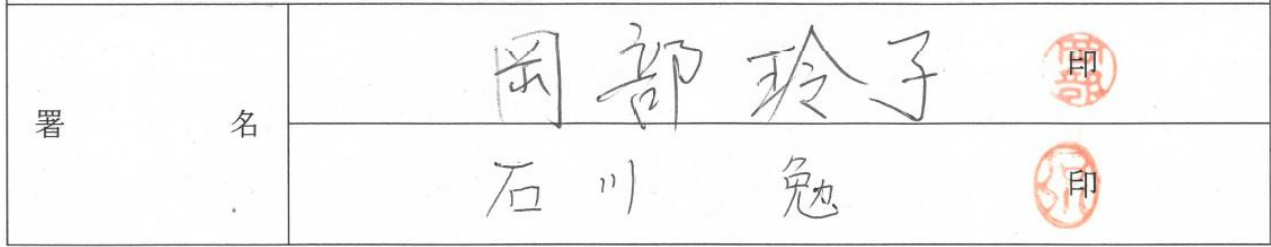 署名
岡部玲子 印
石川 勉 印